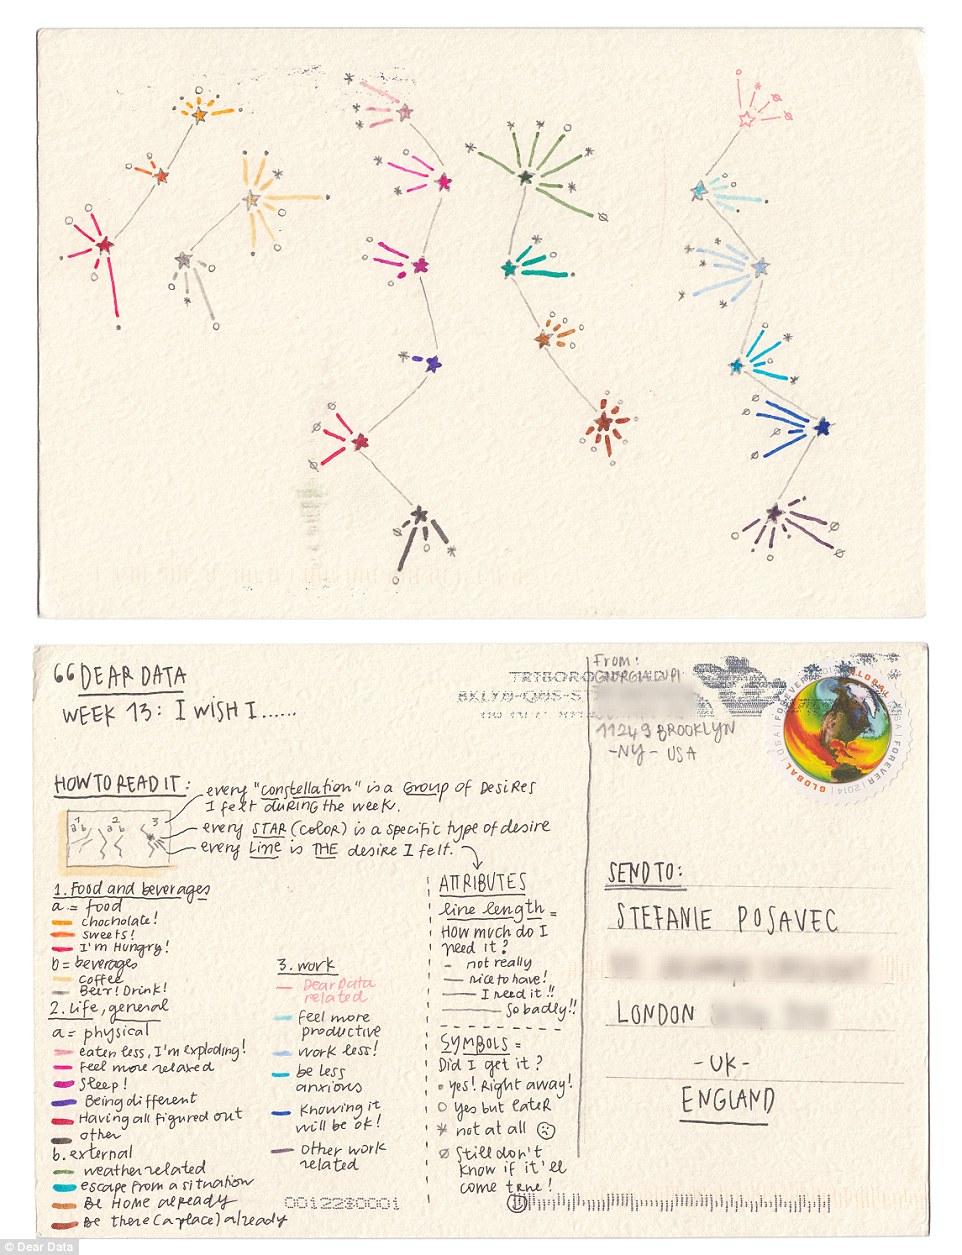 66 DEAR DATA
WEEK 13: I WISH I......
From:
11249 BROOKLYN
-NY- USA
TRIBORO
GLOBAL
FOREVER
USA
2014
HOW TO READ IT:
every "constellation" is a GROUP of DESIRES
I felt DURING the week.
every STAR (color) is a specific type of desire
every LINE is THE desire I felt.
1 2 3
a b a b
1. Food and beverages
a = food
chocholate!
sweets!
I'm Hungry!
b = beverages
coffee
Beer! Drink!
2. Life, general
a = physical
eaten less, I'm exploding!
Feel more relaxed
Sleep!
Being different
Having all figured out
other
b. external
weather related
escape from a situation
Be HOME already
Be there (a place) already
3. work
Dear Data
related
feel more
productive
work less!
be less
anxious
Knowing it
will be ok!
other work
related
ATTRIBUTES
line length =
How much do I
need it?
not really
nice to have!
I need it!!
So badly!!
SYMBOLS =
Did I get it?
yes! Right away!
yes but later
not at all
Still don't
know if it'll
come true!
00122$0001
SEND TO:
STEFANIE POSAVEC
LONDON
-UK-
ENGLAND
© Dear Data